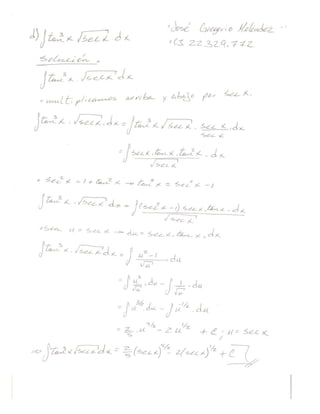 d) ∫tan³x √secx dx
José Gregorio Meléndez
CI 22.329.772
solución.
∫tan³x √secx dx
- multiplicamos arriba y abajo por sec x.
∫tan³x · √secx · dx = ∫tan³x √secx · secx/secx · dx
= ∫ secx · tanx · tan²x / √secx · dx
* sec²x = 1 + tan²x → tan²x = sec²x - 1
∫tan³x · √secx dx = ∫ (sec²x - 1) secx · tanx · dx / √secx
u = secx → du = secx · tanx · dx
∫tan³x · √secx dx = ∫ u² - 1 / √u · du
= ∫ u²/√u · du - ∫ 1/√u · du
= ∫u^3/2 du - ∫u^-1/2 · du
= 2/5 · u^5/2 - 2u^1/2 + C ; u = secx
=> ∫tan³x √secx dx = 2/5 (secx)^5/2 - 2(secx)^1/2 + C